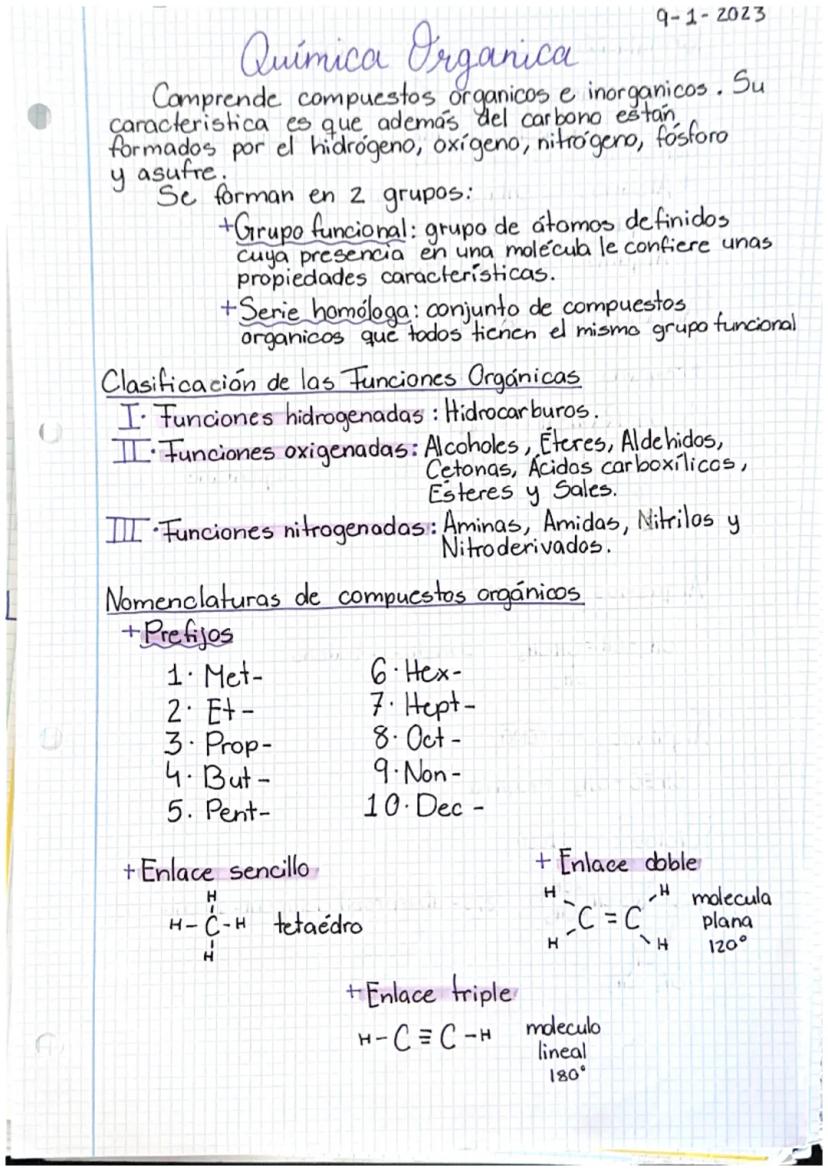 9-1-2023
Química Órganica
Comprende compuestos órganicos e inorganicos. Su
caracteristica es que además del carbono están
formados por el hidrógeno, oxígeno, nitrógeno, fósforo
y asufre.
Se forman en 2 grupos:
+Grupo funcional: grupo de átomos definidos
cuya presencia en una molécula le confiere unas
propiedades características.
+Serie homóloga: conjunto de compuestos
organicos que todos tienen el mismo grupo funcional
Clasificación de las Funciones Orgánicas
I· Funciones hidrogenadas: Hidrocarburos.
II· Funciones oxigenadas: Alcoholes, Éteres, Aldehidos,
Cetonas, Ácidos carboxílicos,
Esteres y Sales.
III·Funciones nitrogenadas: Aminas, Amidas, Nitrilos y
Nitroderivados.
Nomenclaturas de compuestos orgánicos
+Prefijos
1· Met-
2· Et-
3· Prop-
4· But-
5. Pent-
6· Hex-
7· Hept-
8· Oct-
9·Non-
10·Dec -
+Enlace sencillo
H
H-C-H tetaédro
H
+Enlace doble
H H molecula
C=C plana
H H 120°
+Enlace triple
H-C≡C-H moleculo
lineal
180°